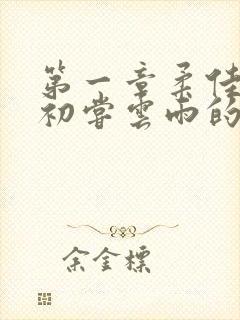 第一章柔佳
初尝云雨的
余金標